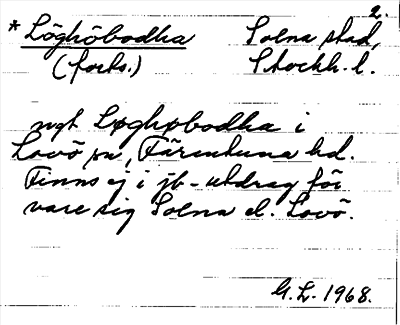 2.
* Löghöbodha Solna stad,
(forts.) Stockh. l.
ngt Løghøbodha i
Lovö sn, Färentuna hd.
Finns ej i jb-utdrag för
vare sig Solna el. Lovö.
G.L. 1968.